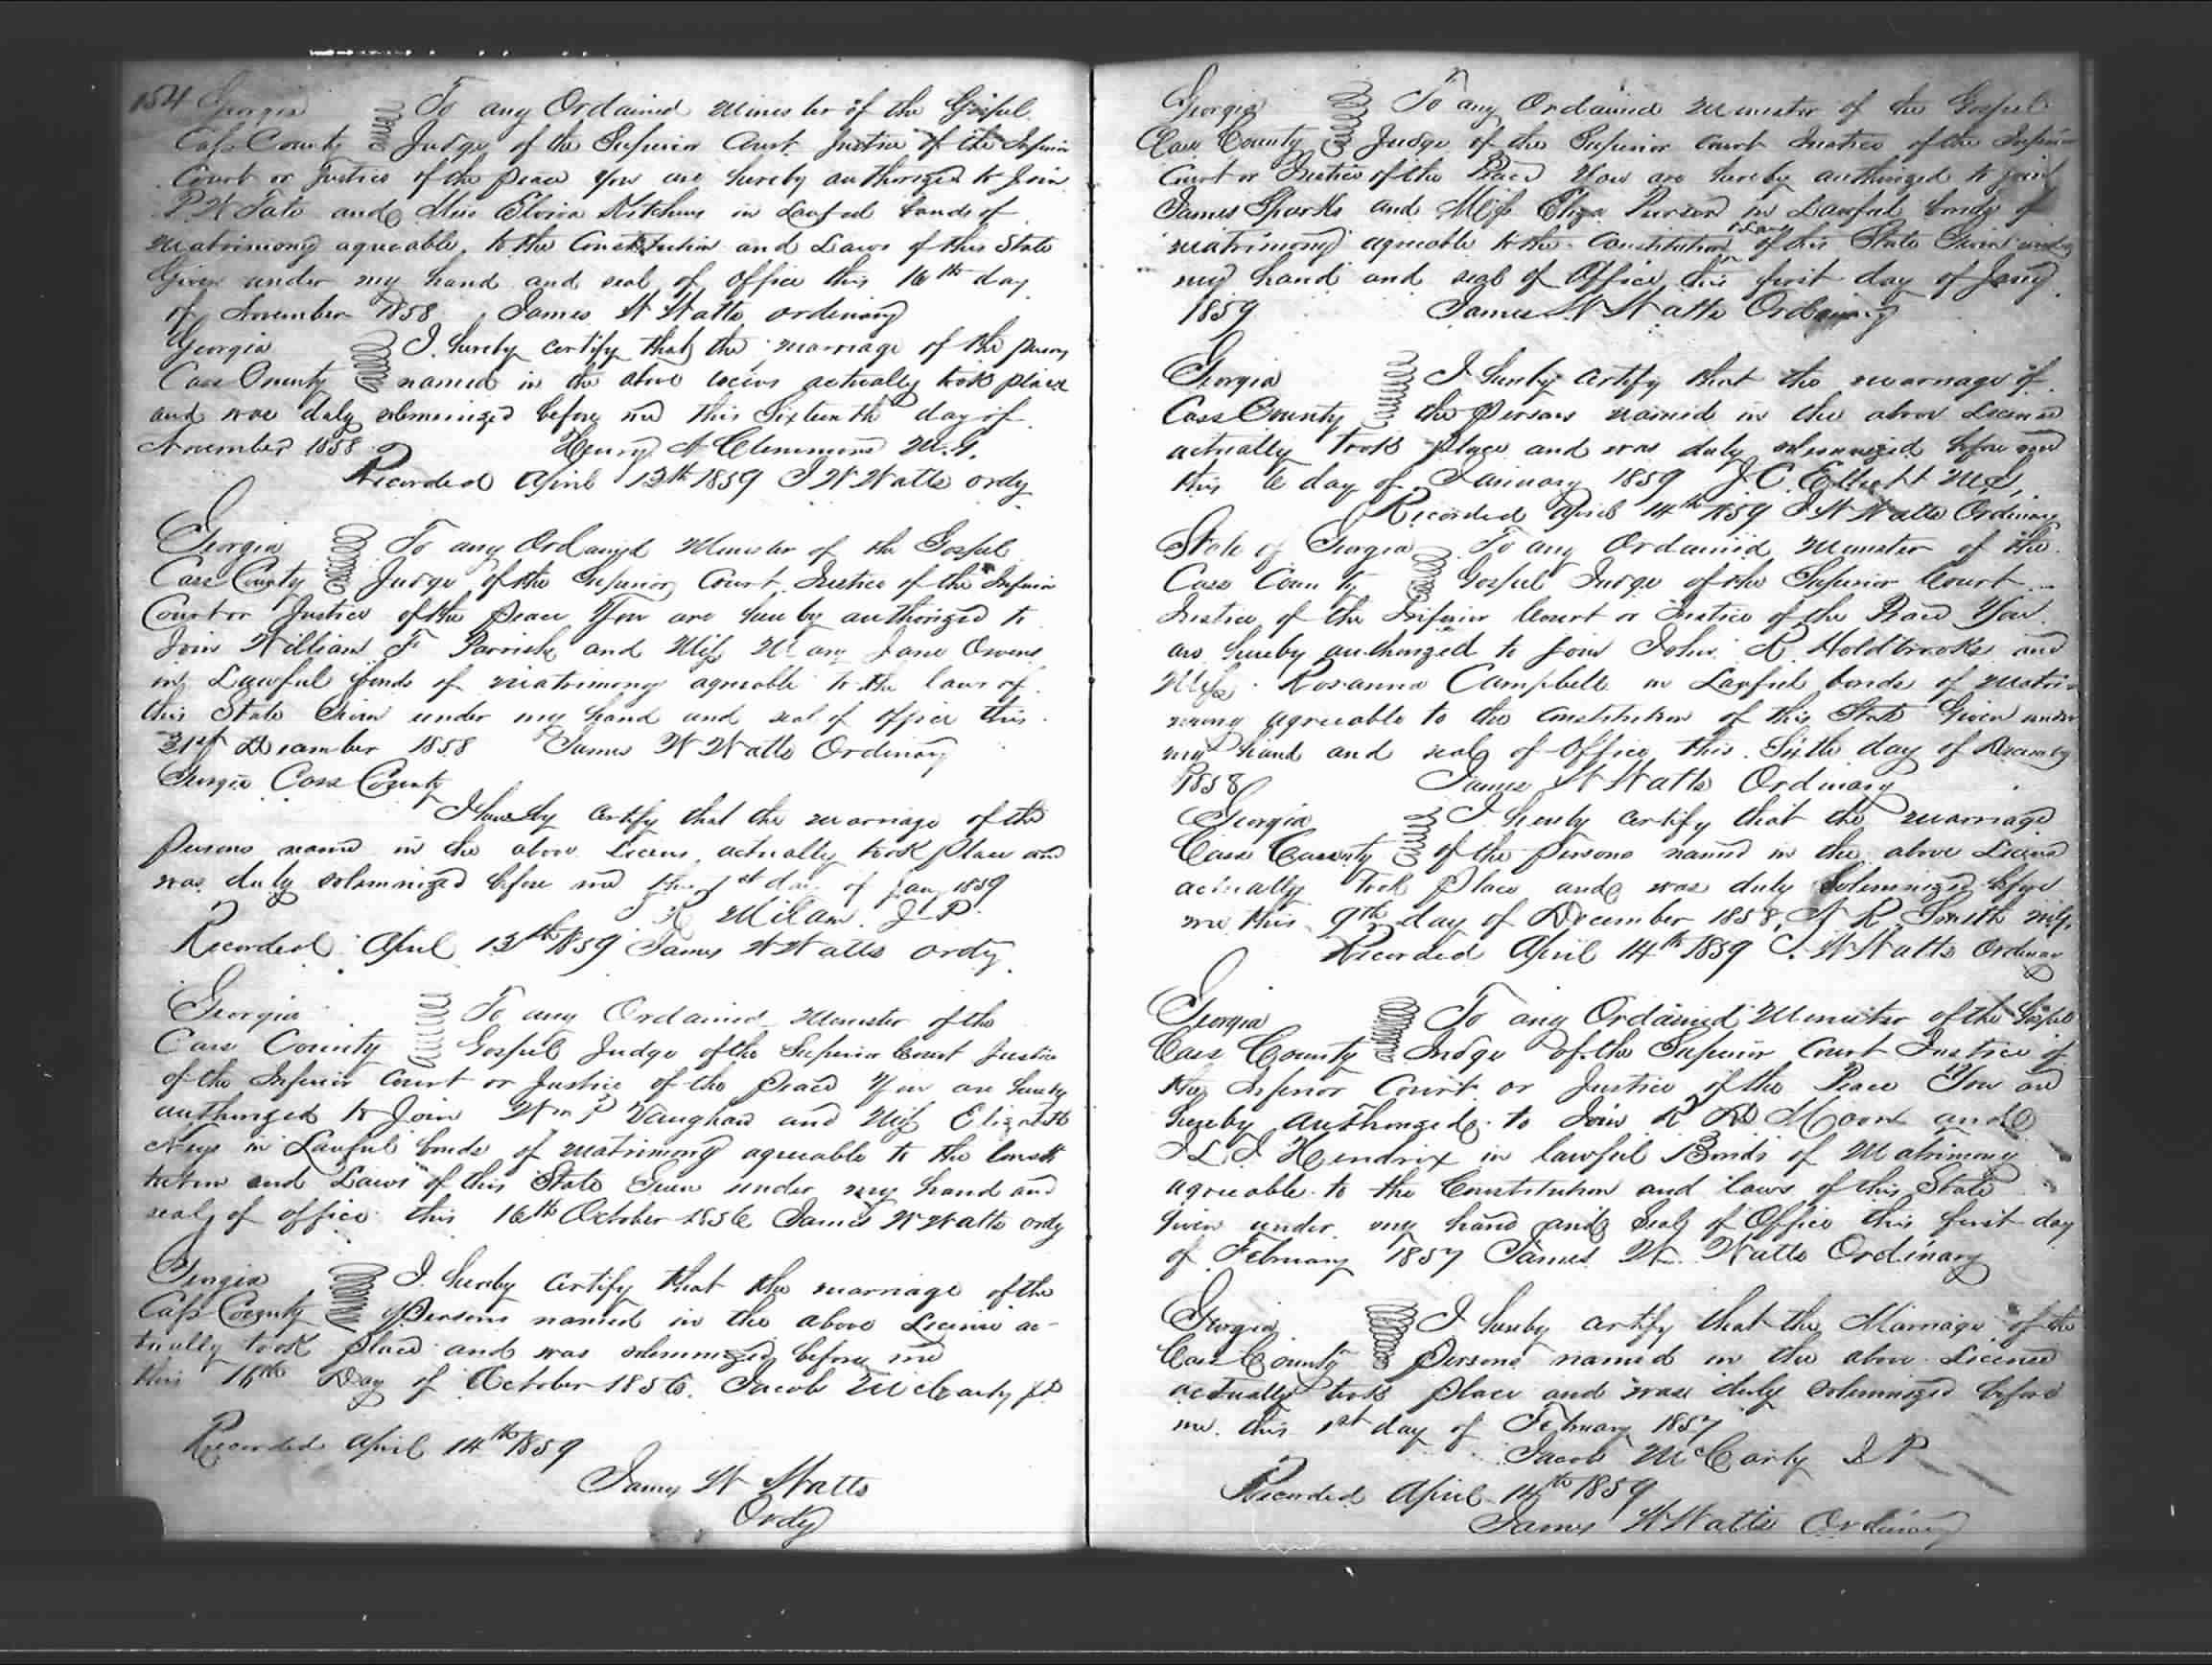 154 Georgia To any Ordained Minister of the Gospel
Cass County Judge of the Superior Court Justice of the Inferior
Court or Justice of the peace You are hereby authorized to Join
P. W. Tate and Miss Elvira Kitchens in Lawful bonds of
matrimony agreeable to the Constitution and Laws of this State
Given under my hand and seal of office this 16th day
of November 1858 James W Watts ordinary
Georgia I hereby certify that the marriage of the persons
Cass County named in the above actually took place
and was duly solemnized before me this Sixteenth day of
November 1858 Henry A Clemmons M.G.
Recorded April 13th 1859 J W Watts ordy
Georgia To any Ordained Minister of the Gospel
Cass County Judge of the Superior Court Justice of the Inferior
Court or Justice of the peace You are hereby authorized to
Join William F Parrish and Miss Mary Jane Owens
in Lawful bonds of matrimony agreeable to the laws of
this State Given under my hand and seal of office this
31st December 1858 James W Watts Ordinary
Georgia Cass County
I hereby certify that the marriage of the
persons named in the above actually took place and
was duly solemnized before me this 1st day of Jan 1859
R Milam J.P.
Recorded April 13th 1859 James W Watts ordy
Georgia To any Ordained Minister of the
Cass County Gospel Judge of the Superior Court Justice
of the Inferior Court or Justice of the peace You are hereby
authorized to Join Wm P Vaughan and Miss Elizabeth
in Lawful bonds of matrimony agreeable to the Consti
tution and Laws of this State Given under my hand and
seal of office this 16th October 1856 James W Watts ordy
Georgia I hereby certify that the marriage of the
Cass County persons named in the above License ac-
tually took place and was solemnized before me
this 16th Day of October 1856. Jacob McCarty JP
Recorded April 14th 1859
James W Watts
Ordy
Georgia To any Ordained Minister of the Gospel
Cass County Judge of the Superior Court Justice of the Inferior
Court or Justice of the Peace You are hereby authorized to join
James Sparks and Miss Eliza in Lawful bonds of
matrimony agreeable to the Constitution & Laws of this State Given under
my hand and seal of Office this first day of Jany
1859 James W Watts Ordinary
Georgia I hereby certify that the marriage of
Cass County the persons named in the above License
actually took place and was duly solemnized before me
this 6 day of January 1859 J. C. Elliott M.G.
Recorded April 14th 1859 J W Watts Ordinary
State of Georgia To any Ordained Minister of the
Cass County Gospel Judge of the Superior Court
Justice of the Inferior Court or Justice of the Peace You
are hereby authorized to join John R Holdbrooks and
Miss Rosanna Campbell in Lawful bonds of Matri-
mony agreeable to the Constitution of this State Given under
my hand and seal of Office this Sixth day of December
1858 James W Watts Ordinary
Georgia I hereby certify that the marriage
Cass County of the persons named in the above License
actually took place and was duly Solemnized before
me this 9th day of December 1858, A R Smith M.G.
Recorded April 14th 1859 J. W Watts Ordinary
Georgia To any Ordained Minister of the Gospel
Cass County Judge of the Superior Court Justice of
the Inferior Court or Justice of the Peace You are
hereby authorized to Join R D Moore and
L J Hendrix in lawful Bonds of Matrimony
agreeable to the Constitution and laws of this State
Given under my hand and Seal of Office this first day
of February 1857 James W. Watts Ordinary
Georgia I hereby certify that the Marriage of the
Cass County persons named in the above License
actually took place and was duly solemnized before
me this 1st day of February 1857
Jacob McCarty J P
Recorded April 14th 1859
James W Watts Ordinary